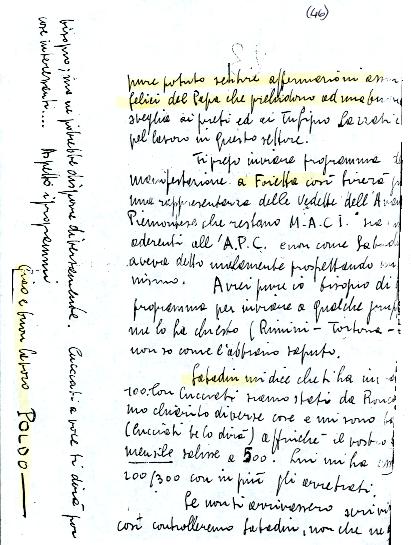 (46)
pure potuto sentire affermazioni assai
felici del Papa che preludono ad una buona
sveglia ai preti ed ai
pel lavoro in questo settore.
Ti prego inviare programma
manifestazione a Foietta così
una rappresentanza delle Vedette dell'
Piemontese che restano M.A.C.I.
aderenti all'A.P.C. e non come Sabadin
aveva detto malamente prospettando
nismo. Avrei pure io bisogno di
programma per inviare a qualche
me lo ha chiesto (Rimini - Tortona -
non so come l'abbiano saputo.
Sabadin mi dice che ti ha
100. Con Cucciati siamo stati da
mo chiarito diverse cose e mi sono
(Cucciati te lo dirà) affinchè il vostro
mensile salisse a 500. Lui mi ha
200/300 con in più gli arretrati.
Se non ti arrivassero scrivi
così controlleremo Sabadin, non che ne
bisogno; ma ne potrebbe disporre diversamente. Cucciati a voce ti dirà
cose interessanti.... Aspetto i programmi
Ciao e buon lavoro POLDO